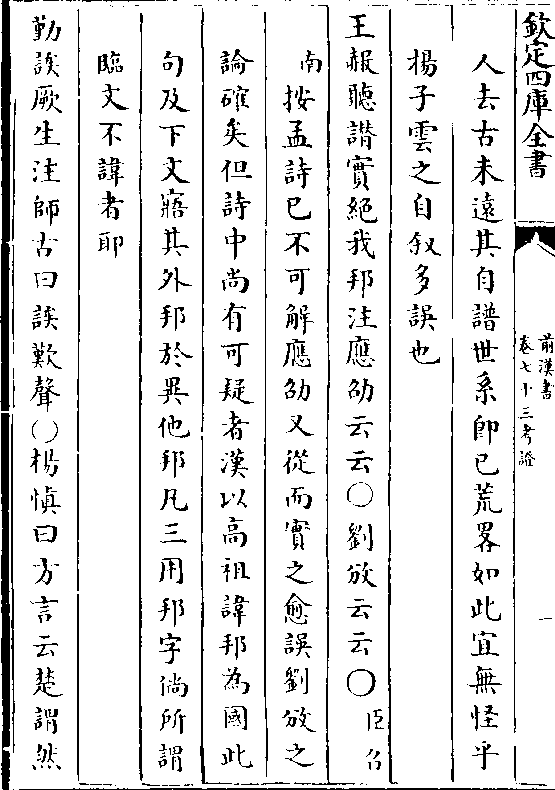 欽定四庫全書
前漢書
卷七十三考證
一
人去古未遠其自譜世系即已荒畧如此宜無怪乎
揚子雲之自叙多誤也
王赧聽譖實絕我邦注應劭云云○劉攽云云○臣召
南按孟詩已不可解應劭又從而實之愈誤劉攽之
論確矣但詩中尚有可疑者漢以高祖諱邦為國此
句及下文寤其外邦於異他邦凡三用邦字倘所謂
臨文不諱者耶
勤誒厥生注師古曰誒歎聲○楊慎曰方言云楚謂然